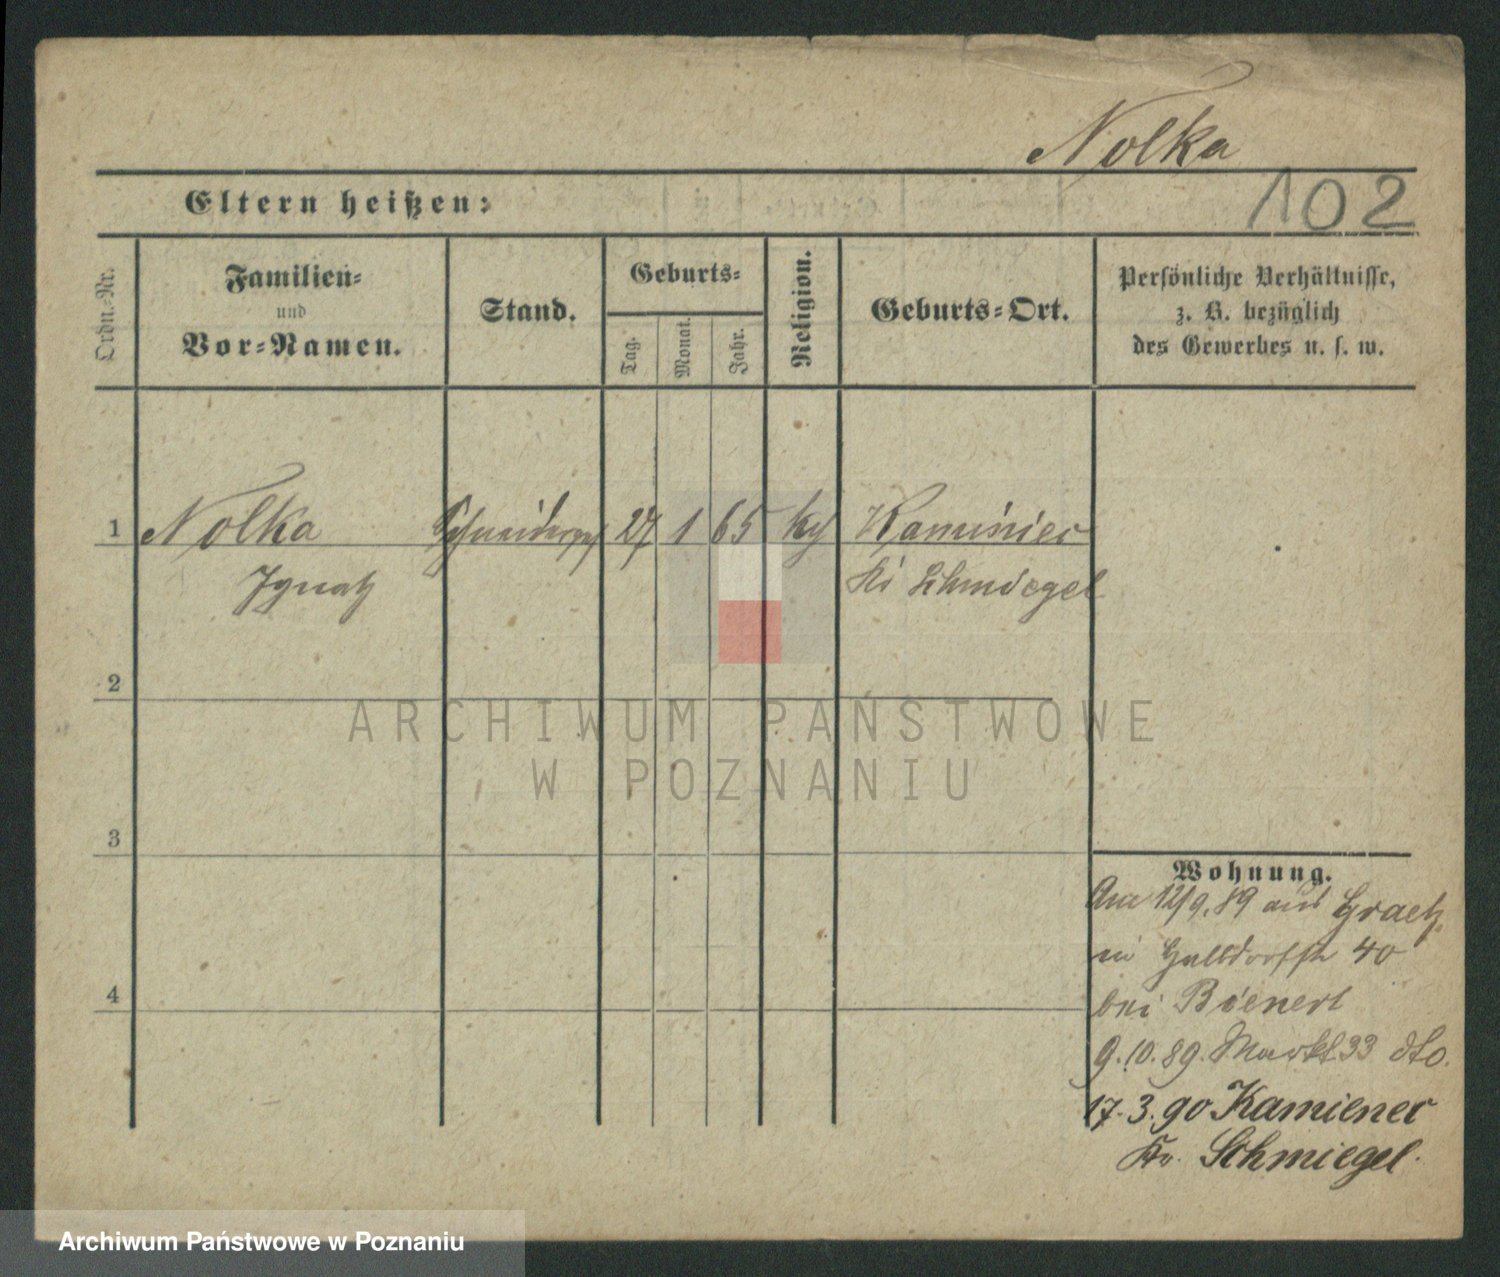 Nolka
102
Eltern heißen:
Ordn.-Nr.
Familien-
und
Vor-Namen.
Stand.
Geburts-
Tag.
Monat.
Jahr.
Religion.
Geburts-Ort.
Persönliche Verhältnisse,
z. B. bezüglich
des Gewerbes u. s. w.
1 Nolka Schneiderges 27 1 65 Kaminiec
Ignatz Schmiegel
2
ARCHIWUM PAŃSTWOWE
W POZNANIU
3
Wohnung.
Am 12/9.89 aus Graetz
in 40
4
bei Bienert
9.10.89. Markt 33 dto.
17.3.90 Kamienec
Kr. Schmiegel.
Archiwum Państwowe w Poznaniu